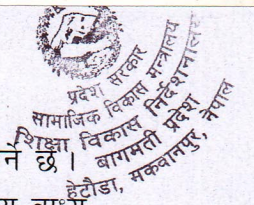 प्रदेश सरकार
सामाजिक विकास मन्त्रालय
शिक्षा विकास निर्देशनालय
बागमती प्रदेश
हेटौंडा, मकवानपुर, नेपाल
ने छ ।